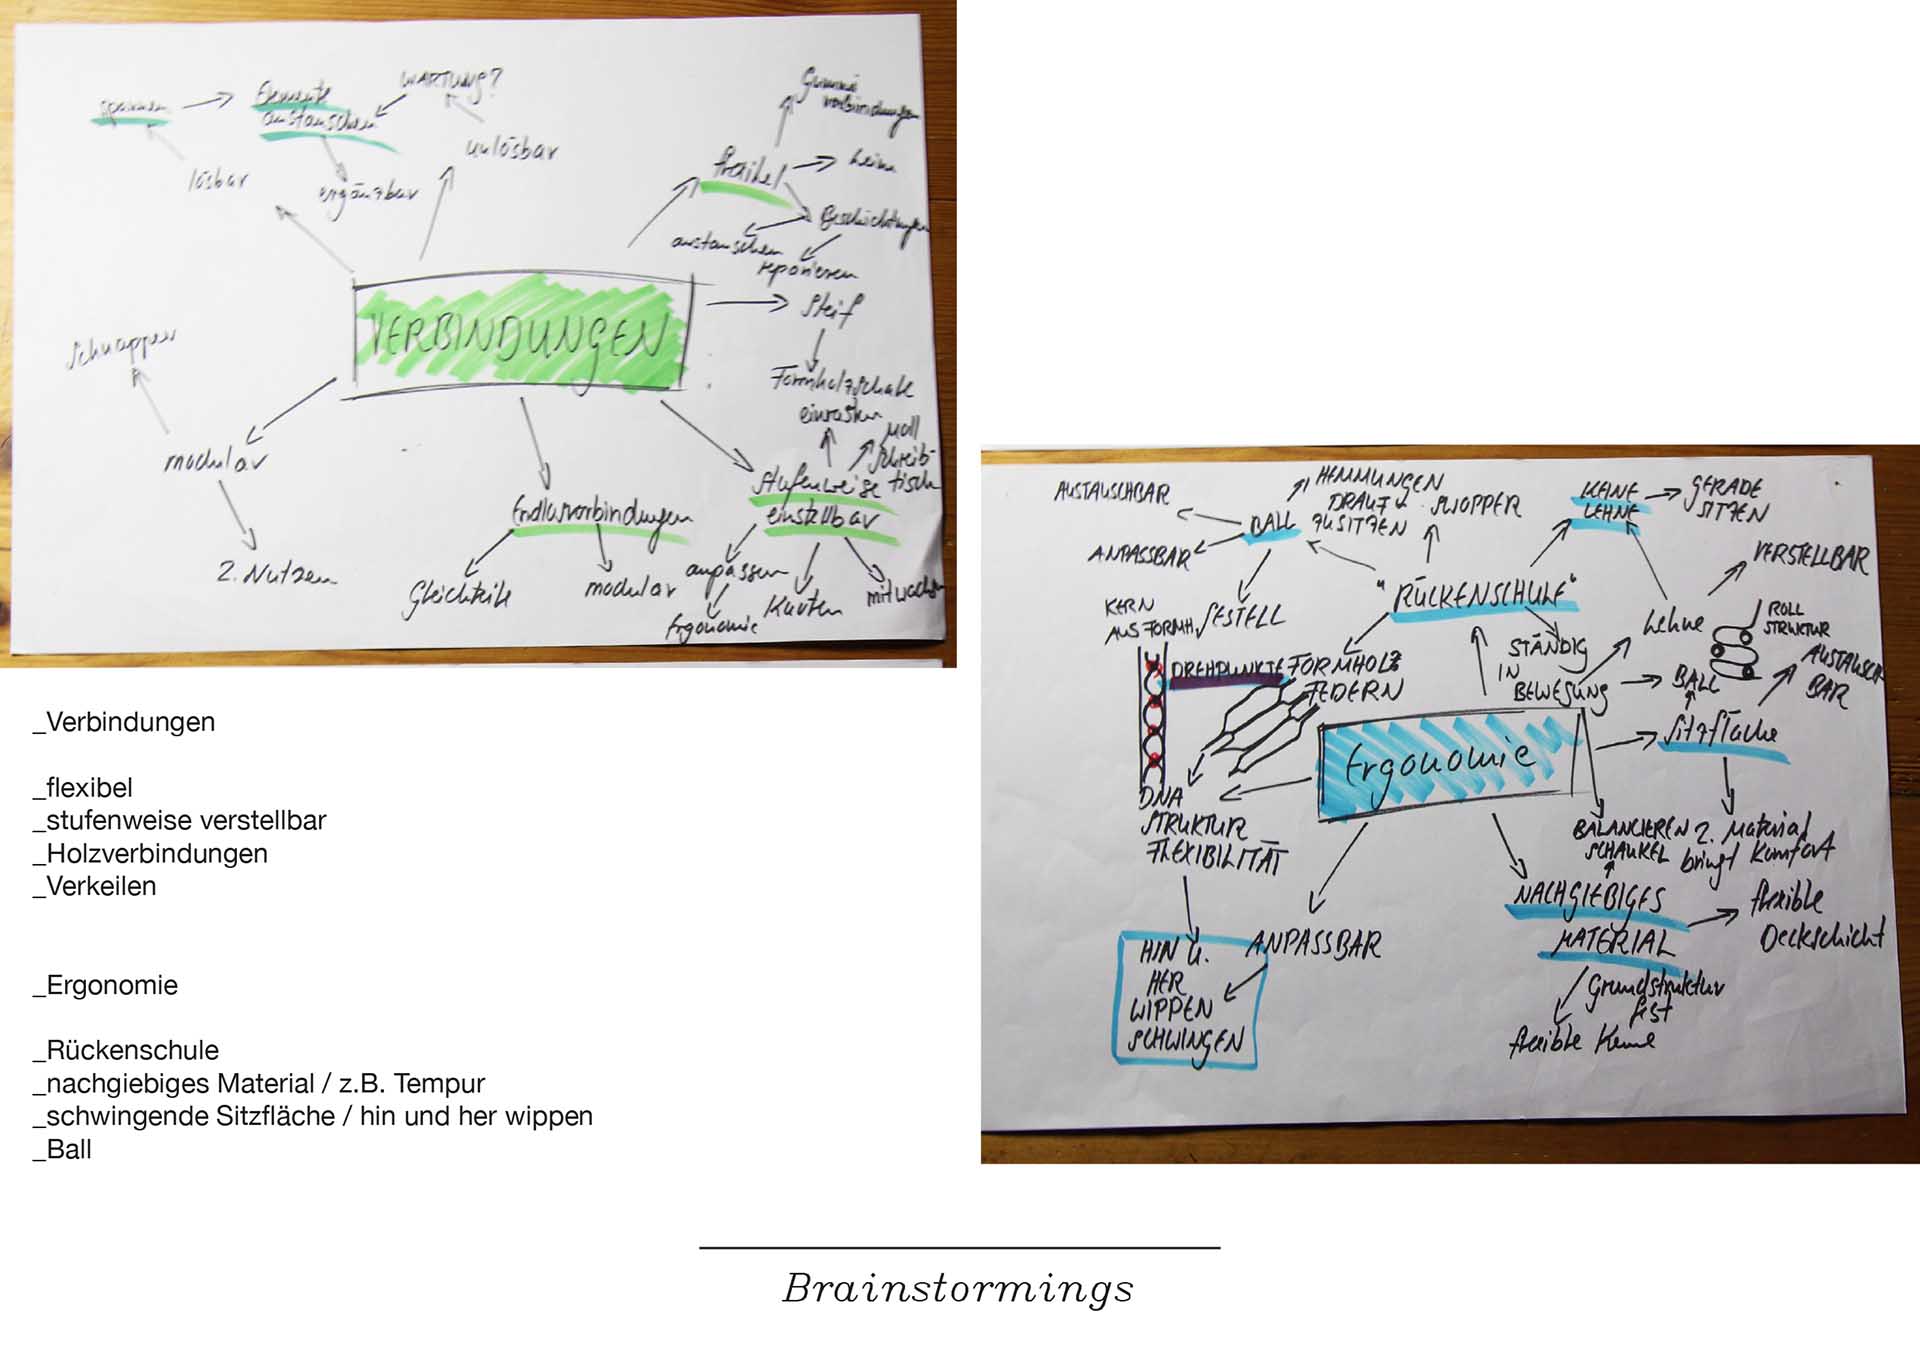 spannen
Elemente
austauschen
WARTUNG?
unlösbar
lösbar
ergänzbar
Gummi
verbindungen
flexibel
Beschichtungen
austauschen
reparieren
steif
VERBINDUNGEN
Schnapper
Formholzschale
einrasten
Moll
Schreib-
tisch
modular
Stufenweise
einstellbar
Endlosverbindungen
2. Nutzen
Gleichteile
modular
anpassen
Ergonomie
Kanten
mitwachsen
_Verbindungen
_flexibel
_stufenweise verstellbar
_Holzverbindungen
_Verkeilen
_Ergonomie
_Rückenschule
_nachgiebiges Material / z.B. Tempur
_schwingende Sitzfläche / hin und her wippen
_Ball
AUSTAUSCHBAR
HEMMUNGEN
DRAUF
ZU SITZEN
SWOPPER
KEINE
LEHNE
GERADE
SITZEN
BALL
ANPASSBAR
GESTELL
"RÜCKENSCHULE"
VERSTELLBAR
Lehne
ROLL
STRUKTUR
KERN
AUS FORMH.
STÄNDIG
IN
BEWEGUNG
BALL
AUSTAUSCH
BAR
DREHPUNKTE
FORMHOLZ
FEDERN
Sitzfläche
Ergonomie
DNA
STRUKTUR
FLEXIBILITÄT
BALANCIEREN
SCHAUKEL
2. Material
bringt Komfort
NACHGIEBIGES
MATERIAL
flexible
Deckschicht
ANPASSBAR
HIN U.
HER
WIPPEN
SCHWINGEN
Grundstruktur
fest
flexible Kerne
Brainstormings